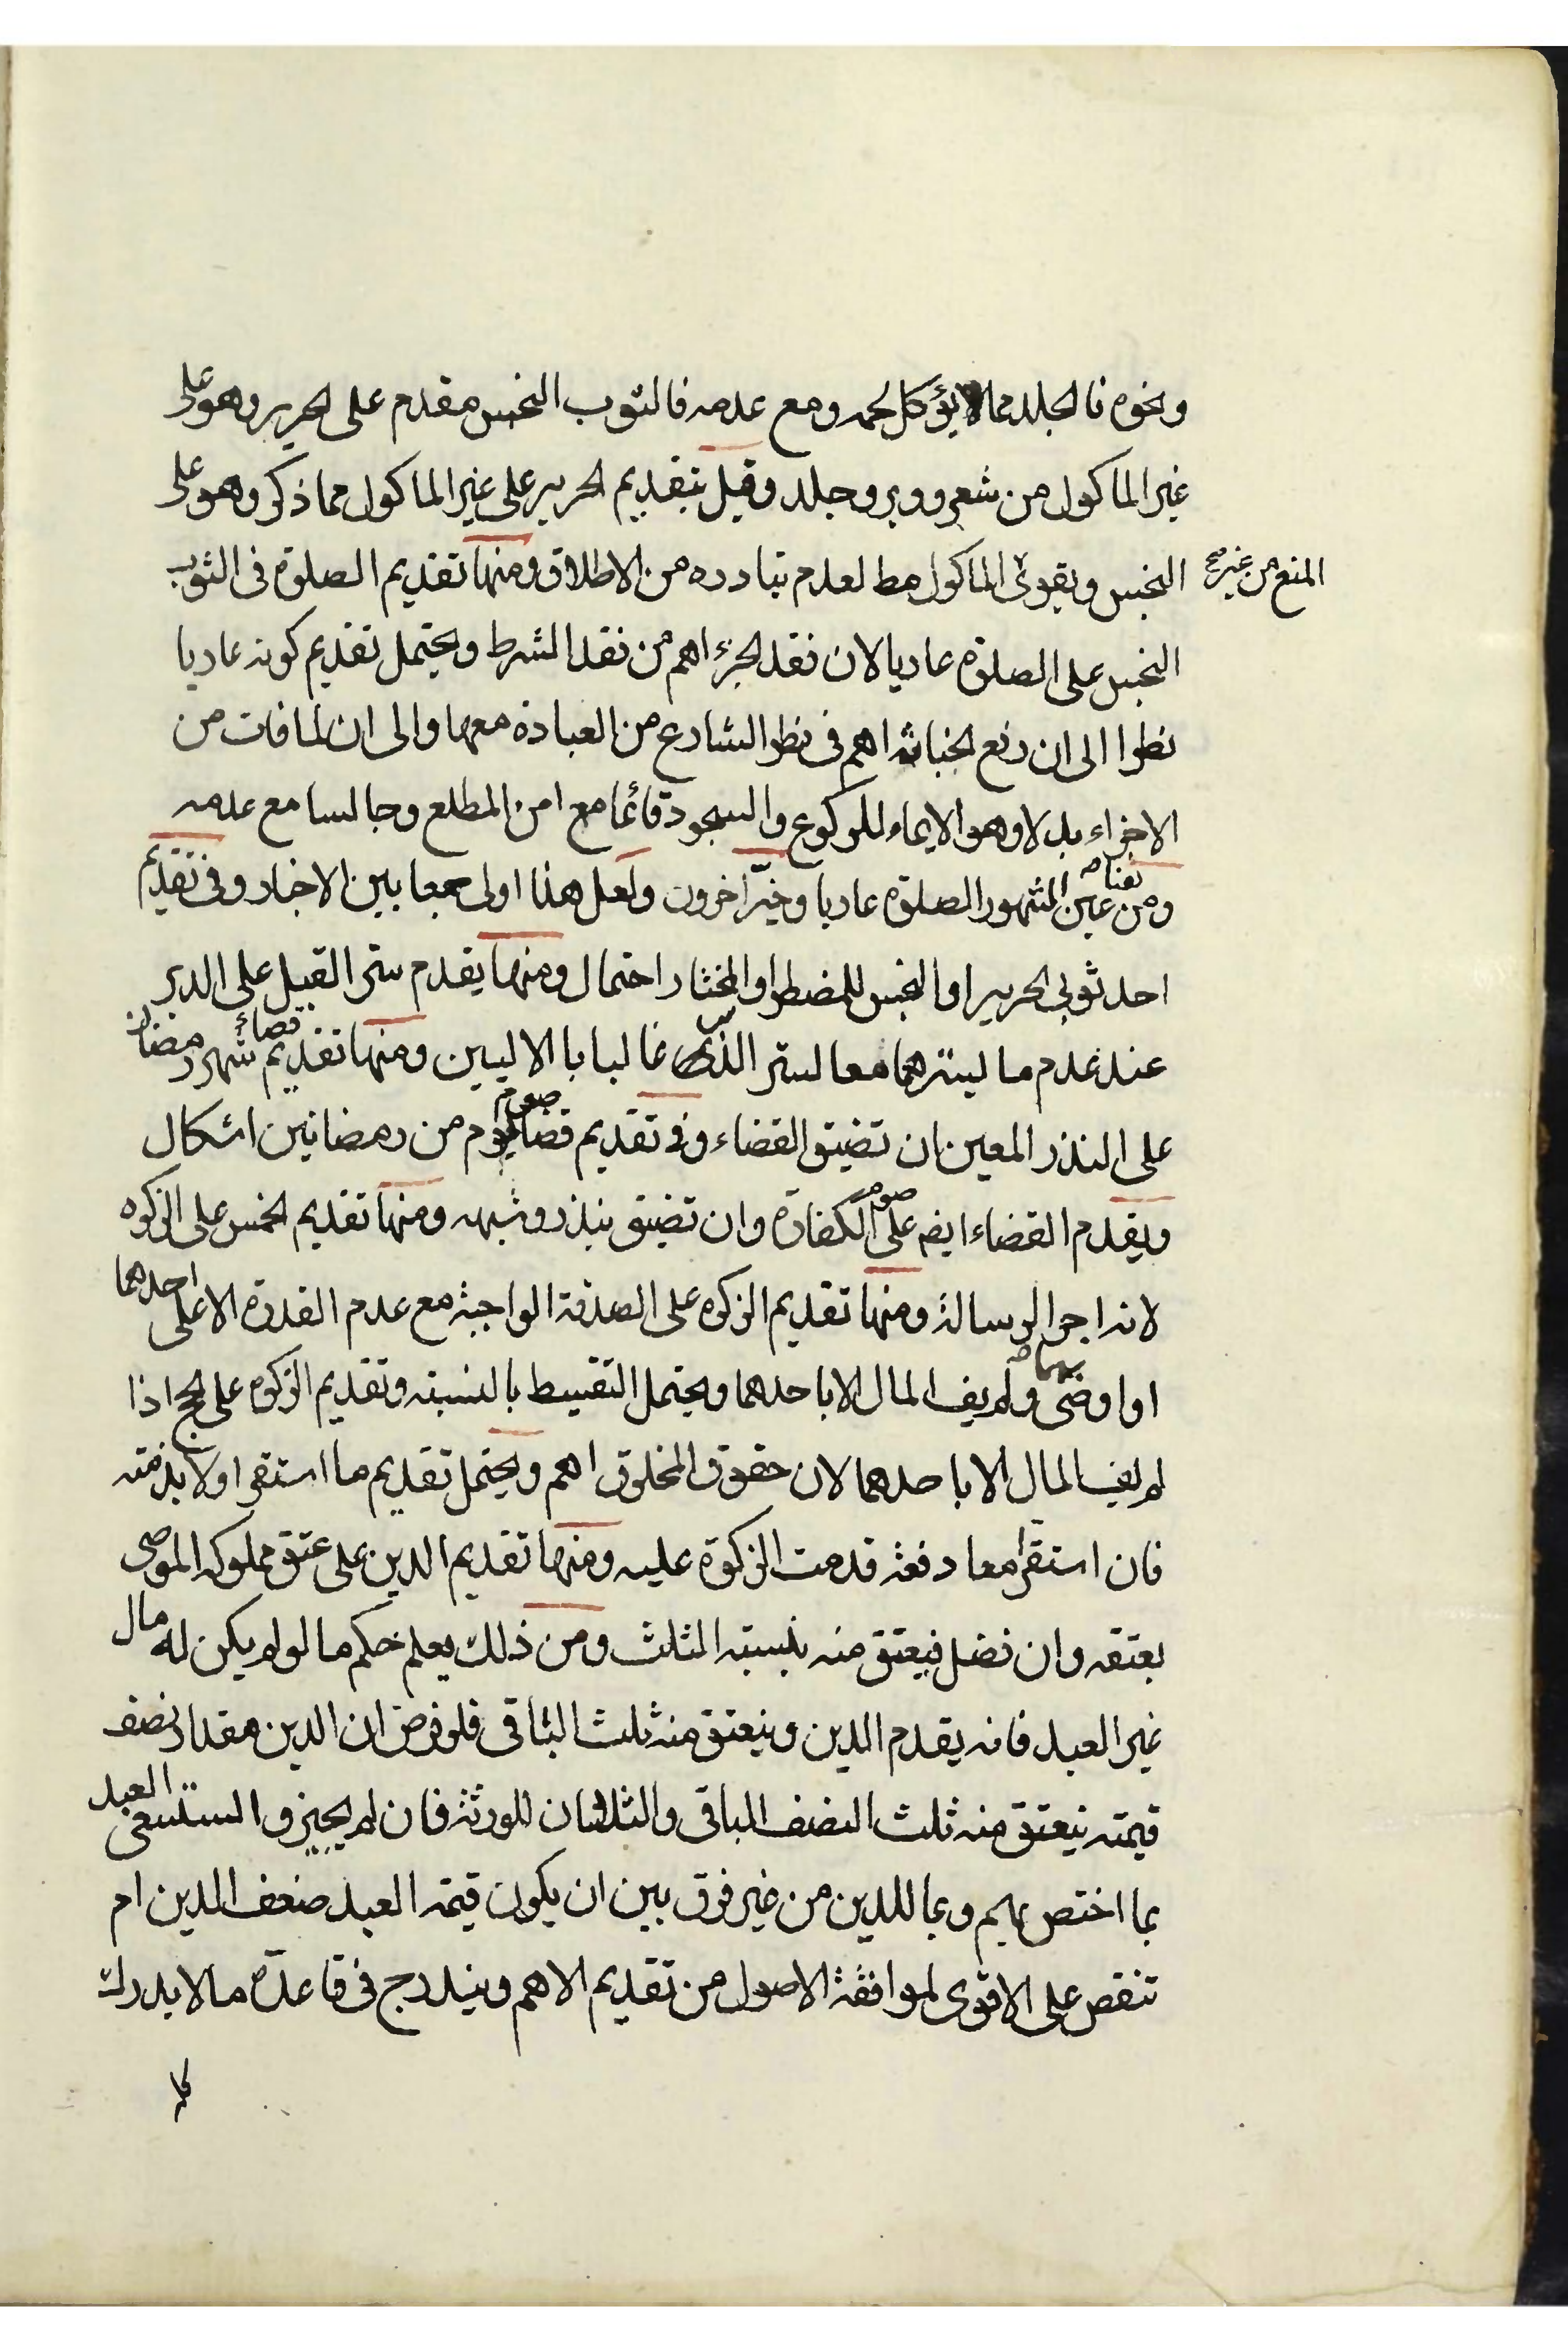 ونحوه فالجلد مما لا يؤكل لحمه ومع عدمه فالثوب النجس مقدم على الحرير وهو على
غير الماكول من شعر ووبر وجلد وقيل بتقديم الحرير على غير الماكول مما ذكر وهو على
النجس ويقوى الماكول مط لعدم تبادره من الاطلاق ومنها تقديم الصلوة فى الثوب
المنع من غيره صح
النجس على الصلوة عاديا لان فقد الجزء اهم من فقد الشرط ويحتمل تقديم كونه عاديا
نظرا الى ان رفع الخباثة اهم فى نظر الشارع من العبادة معها والى ان لما فات من
الاجزاء بدلا وهو الايماء للركوع والسجود قائما مع امن المطلع وجالسا مع عدمه
ومن عين المشهور الصلوة عاديا وخير اخرون ولعل هذا اولى جمعا بين الاخبار وفى تقديم
احد ثوبى الحرير او النجس للمضطر او المختار احتمال ومنها يقدم ستر القبل على الدبر
عند عدم ما يسترهما معا لستر الدبر غالبا بالاليين ومنها تقديم قضاء شهر رمضان
على النذر المعين ان تضيق القضاء وفى تقديم قضاء صوم يوم من رمضانين اشكال
ويقدم القضاء ايضا على صوم الكفارة وان تضيق بنذر وشبهه ومنها تقديم الخمس على الزكوة
لانه اجر الرسالة ومنها تقديم الزكوة على الصدقة الواجبة مع عدم القدرة الا على احدهما
او اوصى بهما ولم يف المال الا باحدهما ويحتمل التقسيط بالنسبة وتقديم الزكوة على الحج اذا
لم يف المال الا باحدهما لان حقوق المخلوق اهم ويحتمل تقديم ما استقر اولا بذمته
فان استقر معا دفعة قدمت الزكوة عليه ومنها تقديم الدين على عتق مملوكه الموصى
بعتقه وان فضل فيعتق منه بنسبته الثلث ومن ذلك يعلم حكم ما لو لم يكن له مال
غير العبد فانه يقدم الدين وينعتق منه ثلث الباقى فلو فرض ان الدين مقدار نصف
قيمته ينعتق منه ثلث النصف الباقى والثلثان للورثة فان لم يجيزوا استسعى العبد
بما اختص بهم وبما للدين من غير فرق بين ان يكون قيمة العبد ضعف الدين ام
تنقص على الاقوى لموافقة الاصول من تقديم الاهم ويندرج فى قاعدة ما لا يدرك
كله